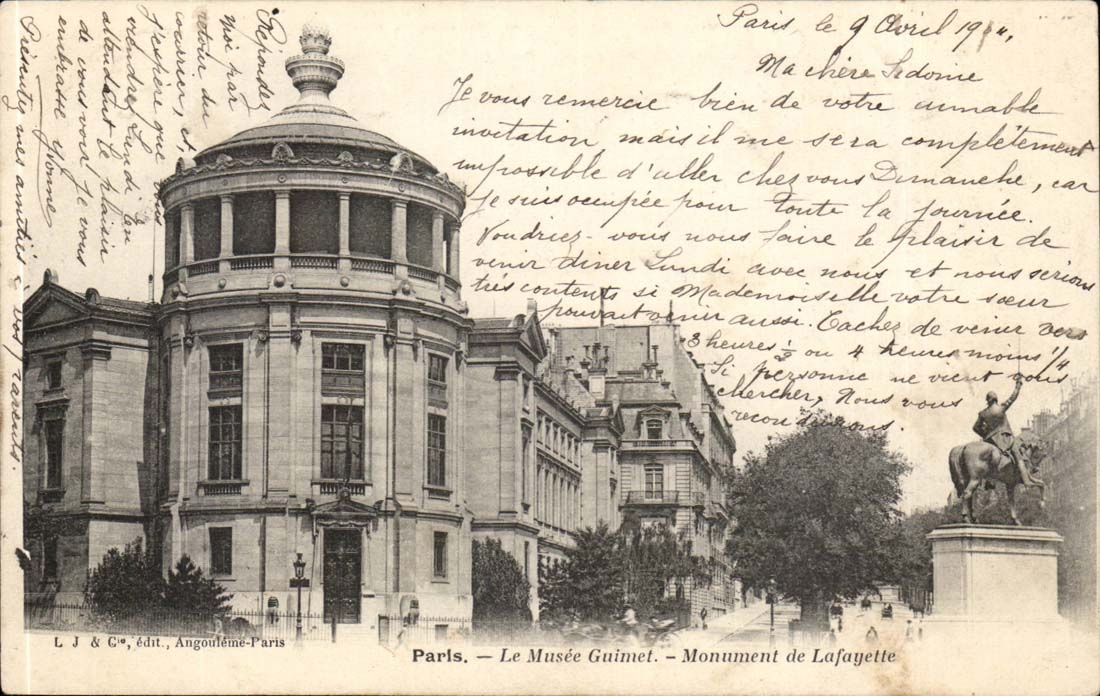 Paris le 9 Avril 19
Ma chère Sidonie
Je vous remercie bien de votre aimable
invitation mais il me sera complètement
impossible d'aller chez vous Dimanche, car
je suis occupée pour toute la journée.
Voudriez-vous nous faire le plaisir de
venir diner Lundi avec nous et nous serions
très contents si Mademoiselle votre sœur
pouvait venir aussi. Tachez de venir vers
3 heures ½ ou 4 heures moins ¼
Si personne ne vient vous
chercher, Nous vous
reconduirons.
Répondez
moi par
retour du
courrier, et
j'espère que vous
viendrez Lundi En
attendant le plaisir
de vous voir je vous
embrasse Yvonne
Présentez mes amitiés à vos parents.
L J & Cie, édit., Angoulême-Paris
Paris. — Le Musée Guimet. — Monument de Lafayette